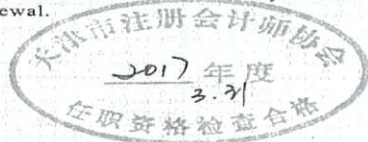 ewal.
天津市注册会计师协会
2017 年度
3.21
任职资格检查合格